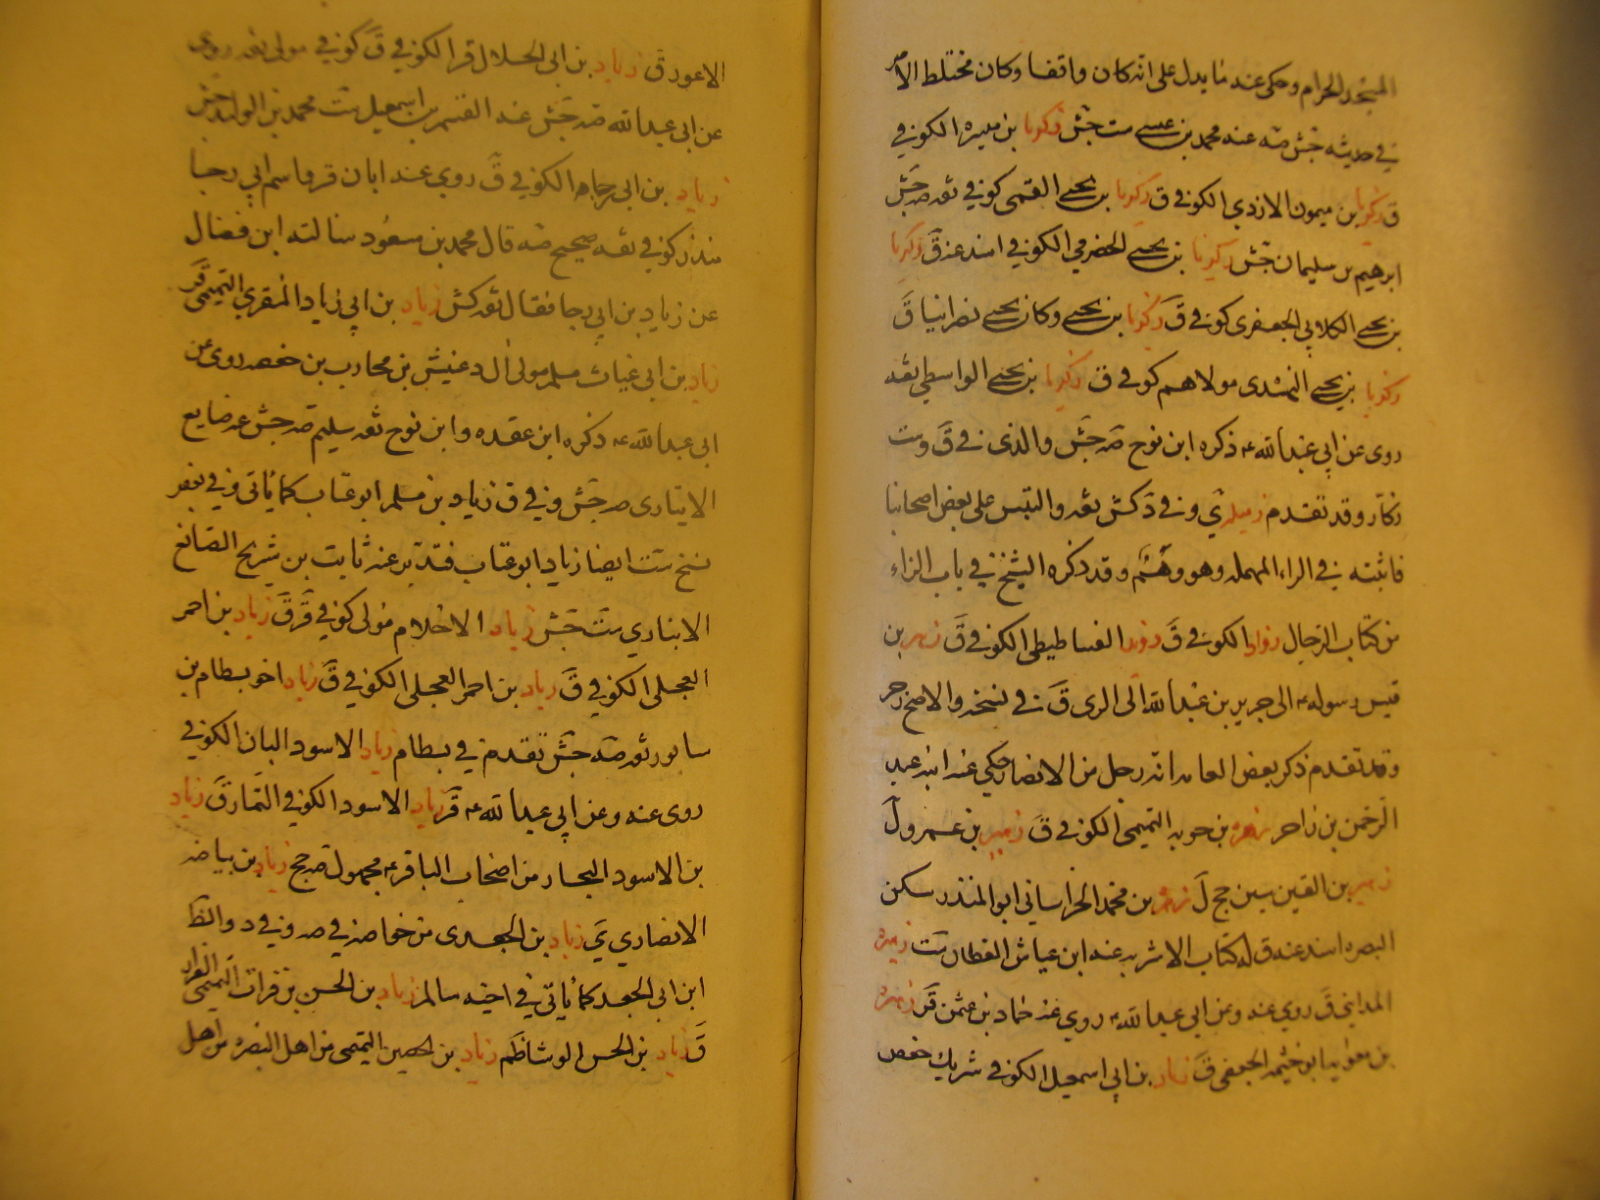 المنجد الحرام وحكى عنه ما يدل على انه كان واقفا وكان مختلط الامر
في حديثه جش صه عنه محمد بن عيسى ست جش زكريا بن ميسرة الكوفي
ق زكريا بن ميمون الازدي الكوفي ق زكريا بن يحيى القمي كوفي ثقه صه جش
ابرهيم بن سليمان جش زكريا بن يحيى الحضرمي الكوفي اسند عنه ق زكريا
بن يحيى الكلابي الجعفري كوفي ق زكريا بن يحيى وكان يحيى نصرانيا ق
زكريا بن يحيى النهدي مولاهم كوفي ق زكريا بن يحيى الواسطي ثقه
روى عن ابي عبد الله ع ذكره ابن نوح صه جش والذي في ق وست
زكار وقد تقدم زميلة ي وفي د كش ثقه والتبس على بعض اصحابنا
فاثبته في الراء المهملة وهو وهم وقد ذكره الشيخ في باب الزاء
من كتاب الرجال زواد الكوفي ق الفساطيطي الكوفي ق زهر بن
قيس رسوله ع الى جرير بن عبد الله الى الري ق في نسخه والاصح زحر
وقد تقدم ذكر بعض العامه انه رجل من الانصار حكي عنه ابنه عبد
الرحمن بن زاهر زهرة بن حوية التميمي الكوفي ق زهير بن عمرو ل
زهير بن القين سين جخ ل زهير بن محمد الخراساني ابو المنذر سكن
البصره اسند عنه ق له كتاب الاشربه عنه ابن عياش القطان ست زهير
المدايني ق روي عنه وعن ابي عبد الله ع روي عنه حماد بن عثمن قر زهير
بن معويه ابو خيثمه الجعفي ق زياد بن ابي اسمعيل الكوفي شريك حفص
الاعور ق زياد بن ابي الحلال قر الكوفي ق كوفي مولى ثقه روى
عن ابي عبد الله صه جش عنه القسم بن اسمعيل ست محمد بن الوليد جش
زياد بن ابي رجاء الكوفي ق روي عنه ابان قر واسم ابي رجا
منذر كوفي ثقه صحيح صه قال محمد بن مسعود سالته ابن فضال
عن زياد بن ابي رجا فقال ثقه كش زياد بن ابي زياد المنقري التميمي قر
زياد بن ابي غياث مسلم مولى ال دغيش بن محارب بن خصفه روى عن
ابي عبد الله ع ذكره ابن عقده وابن نوح ثقه سليم صه جش عنه ضايع
الانباري صه جش وفي ق زياد بن مسلم ابو عتاب كما ياتي وفي بعض
نسخ ست ايضا زياد ابو عتاب فتدبر عنه ثابت بن شريح الصائغ
الانباري ست جش زياد الاحلام مولى كوفي قر ق زياد بن احمر
العجلي الكوفي ق زياد بن احمر العجلي الكوفي ق زياد اخو بسطام بن
سابور ثقه صه جش تقدم في بسطام زياد الاسود البان الكوفي
روى عنه وعن ابي عبد الله ع قر زياد الاسود الكوفي التمار ق زياد
بن الاسود النجار من اصحاب الباقر ع مجهول صه جخ زياد بن بياضه
الانصاري ي زياد بن الجعدى من خواصه في صه وفي د والظ
ابن ابي الجعد كما ياتي في اخيه سالم زياد بن الحسن بن فرات التميمي القزاز
ق زياد بن الحسن الوشا ظم زياد بن الحصين التميمي من اهل البصره من اهل